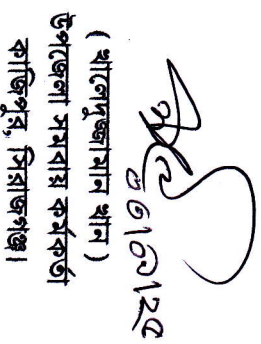 ( খালেদুজ্জামান খান )
উপজেলা সমবায় কর্মকর্তা
কাজিপুর, সিরাজগঞ্জ।